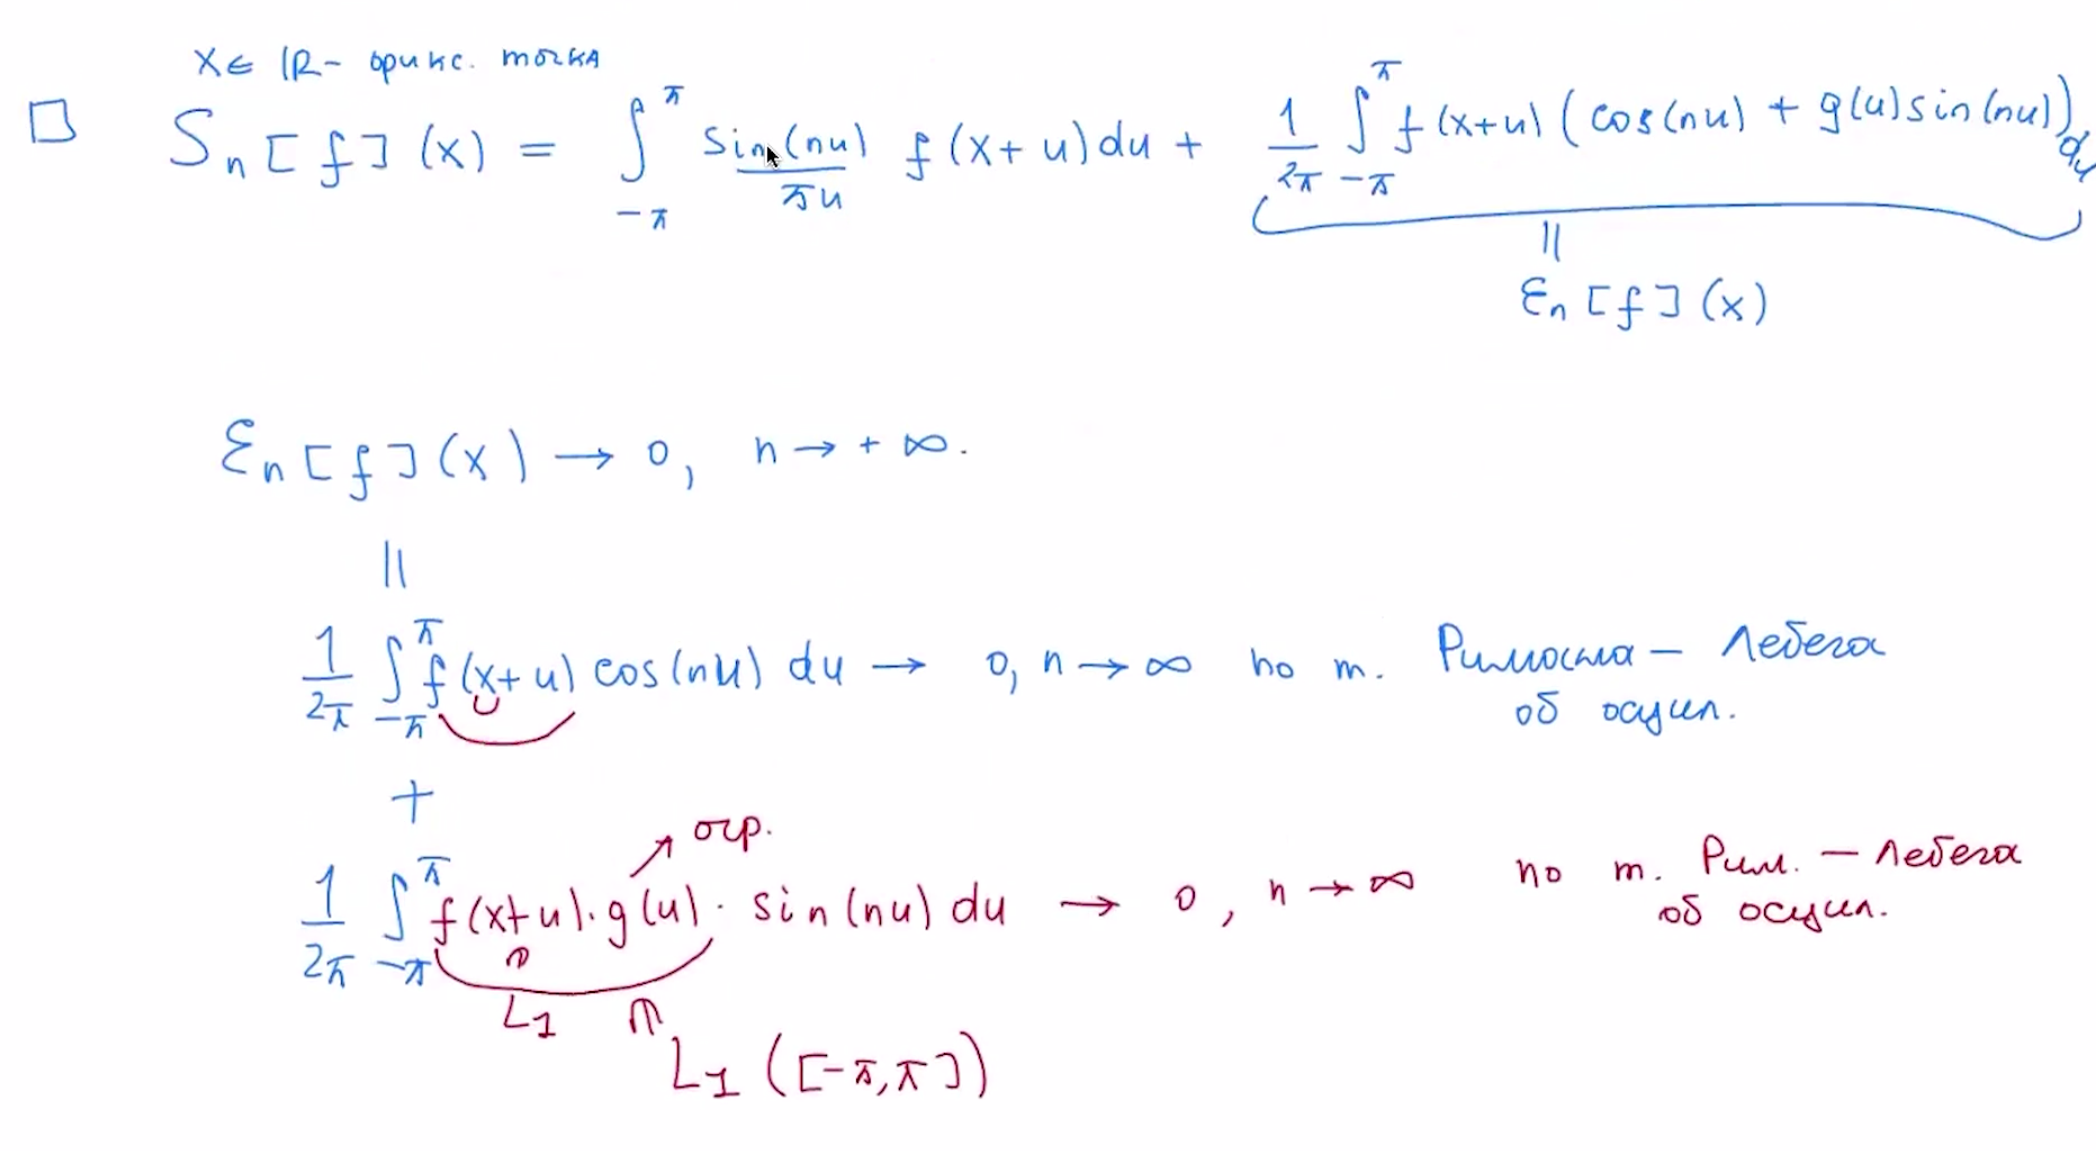 x ∈ ℝ - фикс. точка
□ Sₙ[f](x) = ∫_{-π}^{π} sin(nu)/(πu) f(x+u)du + 1/(2π) ∫_{-π}^{π} f(x+u)(cos(nu) + g(u)sin(nu))du
||
εₙ[f](x)
εₙ[f](x) → 0, n → +∞.
||
1/(2π) ∫_{-π}^{π} f(x+u) cos(nu) du → 0, n → ∞ по т. Римана - Лебега
об осцил.
+
огр.
1/(2π) ∫_{-π}^{π} f(x+u)·g(u)·sin(nu) du → 0, n → ∞ по т. Рим. - Лебега
об осцил.
L₁
L₁([-π,π])